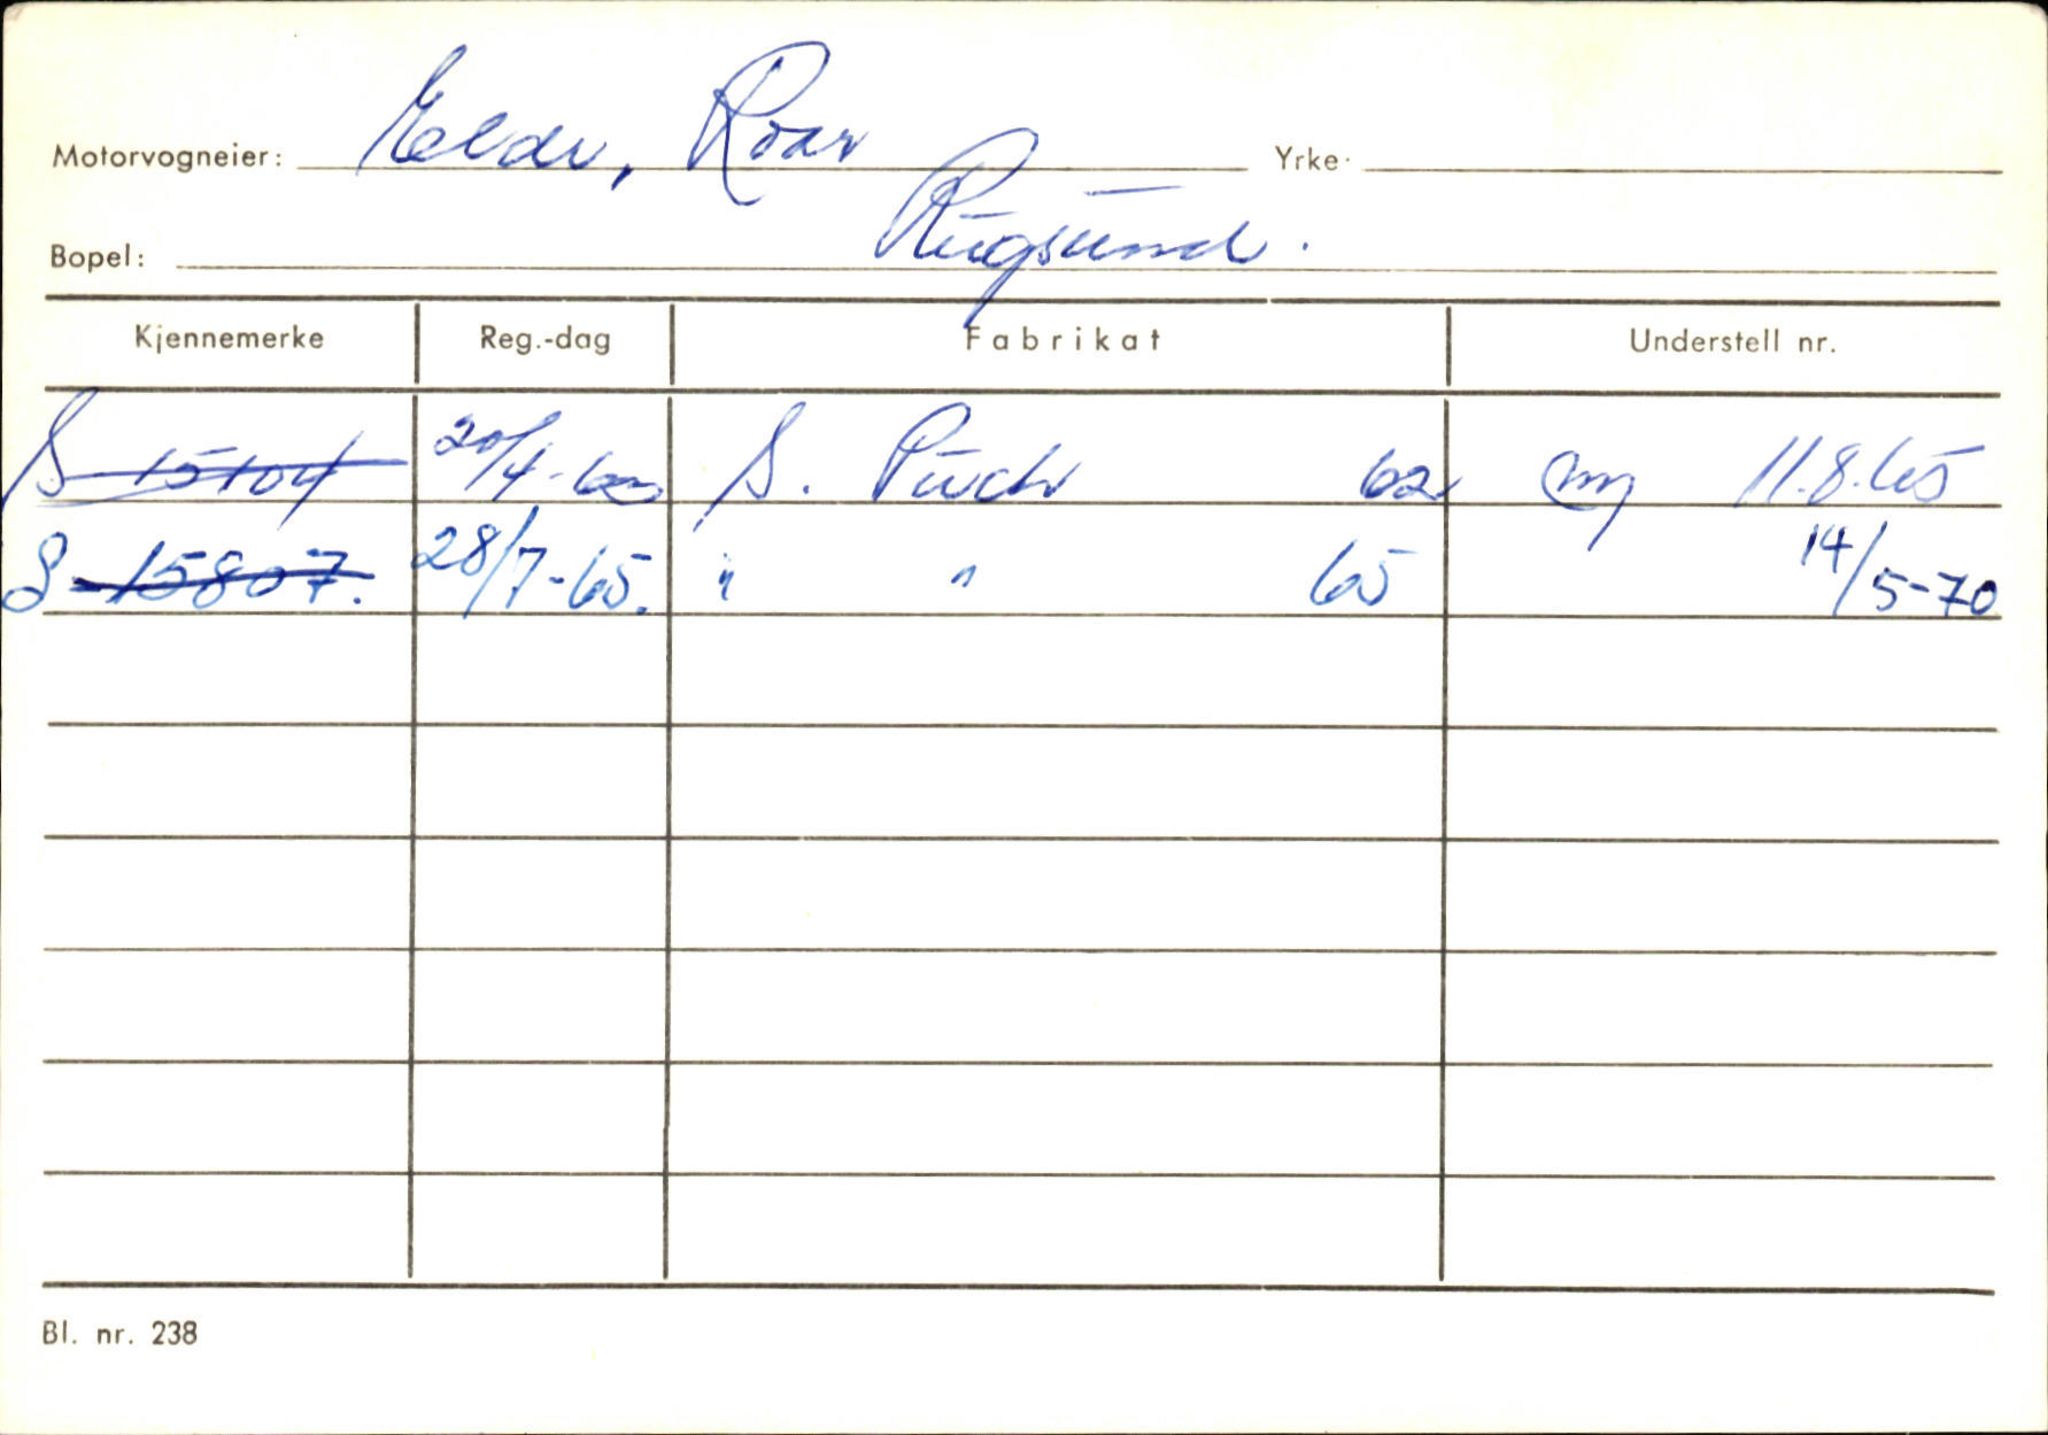 Motorvogneier: Eldr, Roar Yrke·
Bopel: Rugsund.
Kjennemerke Reg.-dag Fabrikat Understell nr.
S-15104 20/4-62 S. Puch 62 11.8.65
S-15807. 28/7-65. " " 65 14/5-70
Bl. nr. 238